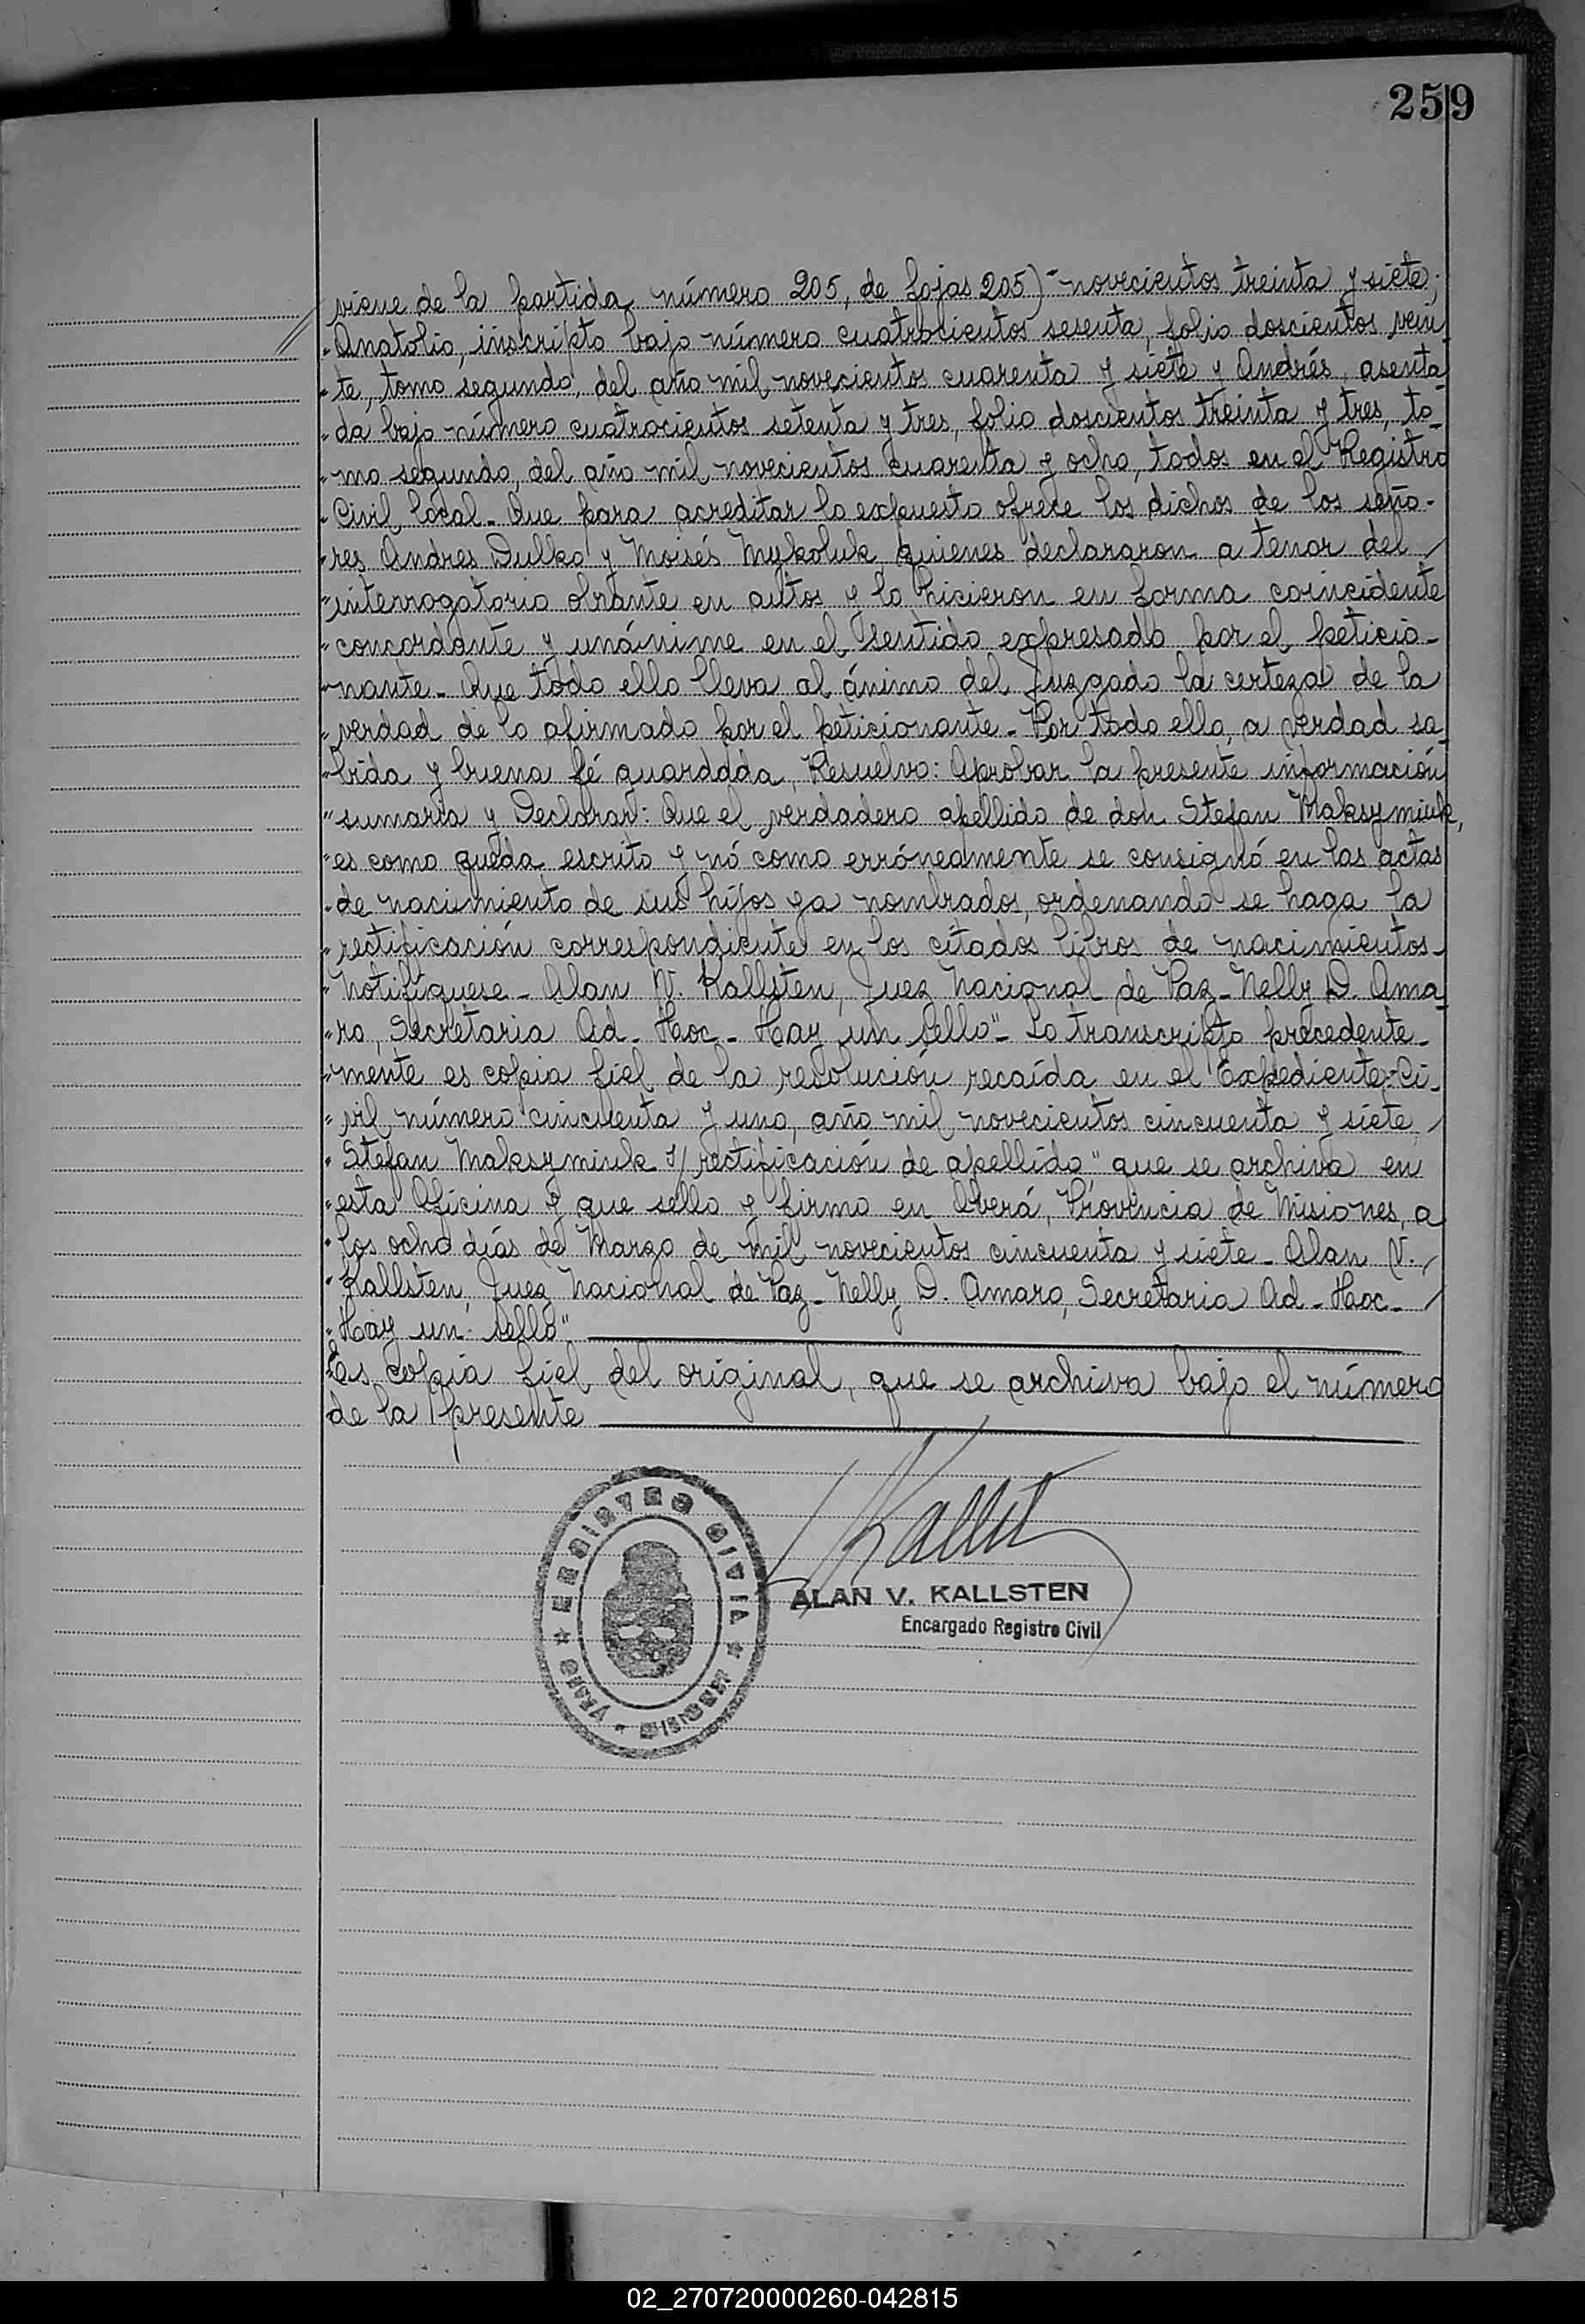 259
viene de la partida número 205, de fojas 205)"novecientos treinta y siete;
"Anatolio, inscripto bajo número cuatrocientos sesenta, folio doscientos vein
"te, tomo segundo, del año mil novecientos cuarenta y siete y Andrés, asenta-
"da bajo número cuatrocientos setenta y tres, folio doscientos treinta y tres, to-
"mo segundo, del año mil novecientos cuarenta y ocho, todos en el Registro
"Civil local_ Que para acreditar lo expuesto ofrece los dichos de los seño-
"res Andres Dulko y Moisés Mykoluk, quienes declararon a tenor del /
"interrogatorio obrante en autos y lo hicieron en forma coincidente
"concordante y unánime en el sentido expresado por el peticio-
"nante_ Que todo ello lleva al ánimo del Juzgado la certeza de la
"verdad de lo afirmado por el peticionante_ Por todo ello, a verdad sa-
"bida y buena fé guarddda, Resuelvo: Aprobar la presente información
"sumaria y Declarar: Que el verdadero apellido de don Stefan Maksymiuk,
"es como queda escrito y nó como erróneamente se consignó en las actas
"de nacimiento de sus hijos ya nombrados, ordenando se haga la
"rectificación correspondiente en los citados libros de nacimientos_
"Notifíquese_ Alan V. Kallsten, Juez Nacional de Paz_ Nelly D. Ama-
"ro, Secretaria Ad-Hoc_ Hay un sello"_ Lo transcripto precedente-
"mente es copia fiel de la resolución recaída en el "Expediente-Ci-
"vil número cincuenta y uno, año mil novecientos cincuenta y siete, /
"Stefan Maksymiuk s/rectificación de apellido" que se archiva en
"esta Oficina y que sello y firmo en Oberá, Provincia de Misiones, a
"los ocho días de Marzo de mil novecientos cincuenta y siete_ Alan V. /
"Kallsten, Juez Nacional de Paz_ Nelly D. Amaro, Secretaria Ad-Hoc_ /
"Hay un sello"
Es copia fiel del original, que se archiva bajo el número
de la presente
REGISTRO CIVIL
Kallst
ALAN V. KALLSTEN
Encargado Registro Civil
02_270720000260-042815